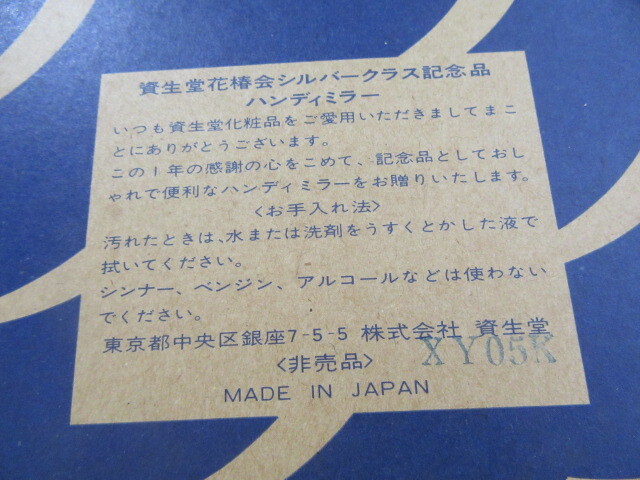 資生堂花椿会シルバークラス記念品
ハンディミラー
いつも資生堂化粧品をご愛用いただきましてまこ
とにありがとうございます。
この1年の感謝の心をこめて、記念品としておし
ゃれで便利なハンディミラーをお贈りいたします。
〈お手入れ法〉
汚れたときは、水または洗剤をうすくとかした液で
拭いてください。
シンナー、ベンジン、アルコールなどは使わない
でください。
東京都中央区銀座7-5-5 株式会社 資生堂
〈非売品〉
XY05K
MADE IN JAPAN